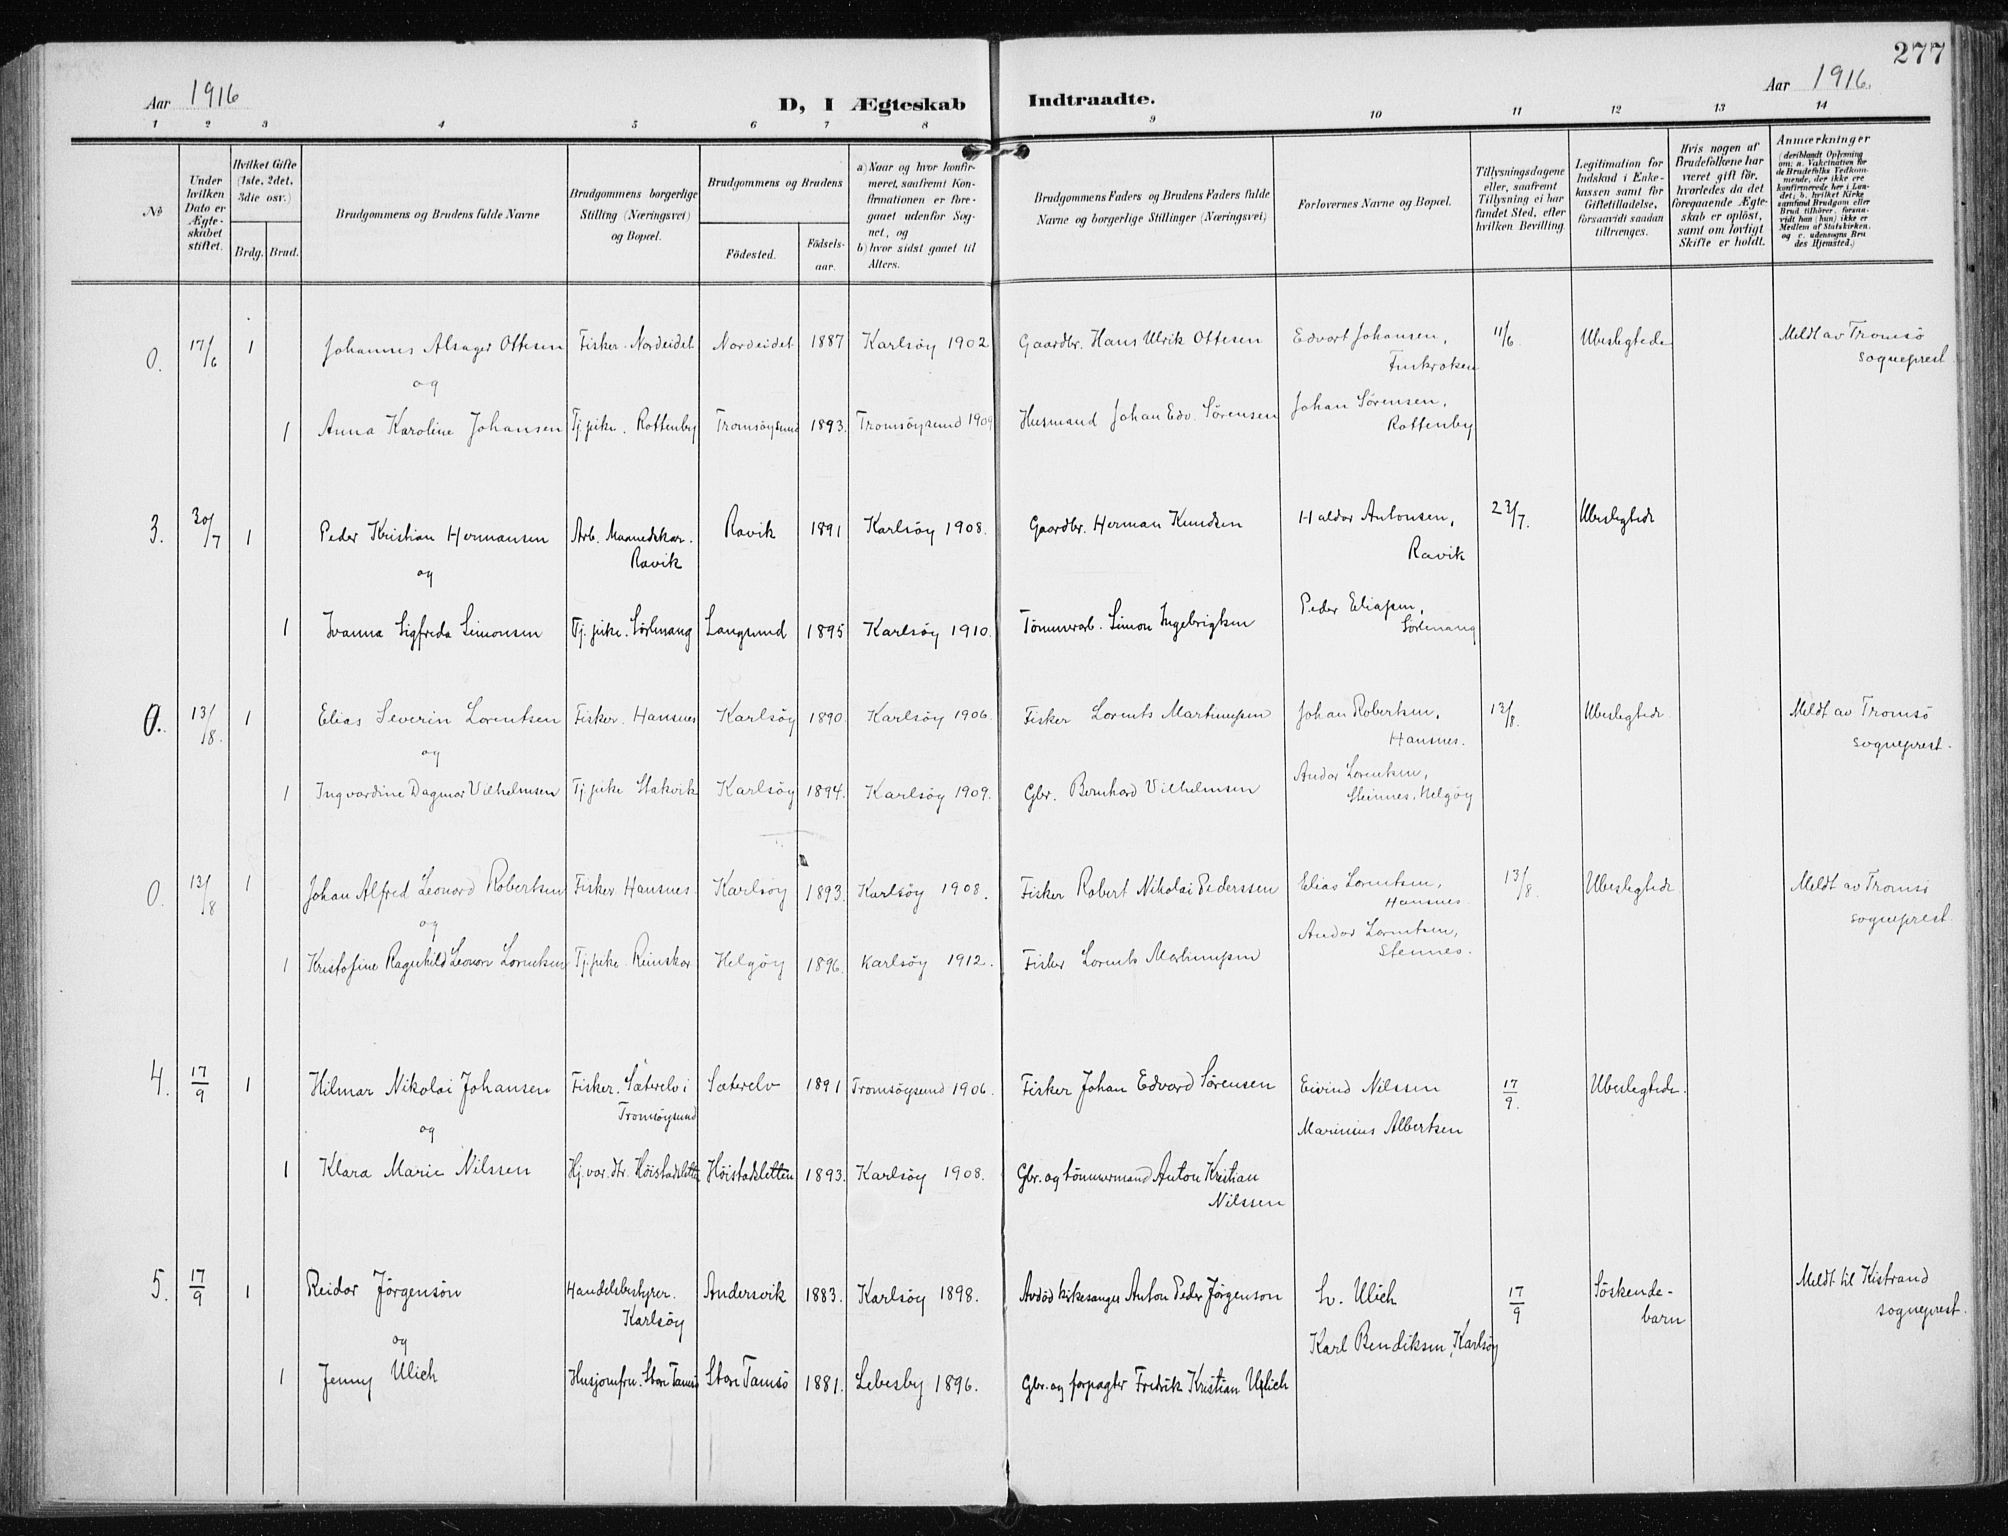 277
Aar 1916
D, I Ægteskab Indtraadte.
Aar 1916.
1 2 3 4 5 6 7 8 9 10 11 12 13 14
No
Under hvilken Dato er Ægteskabet stiftet.
Hvilket Gifte (1ste, 2det, 3die osv.)
Brdg. Brud.
Brudgommens og Brudens fulde Navne
Brudgommens borgerlige Stilling (Næringsvei) og Bopæl.
Brudgommens og Brudens
Födested.
Födselsaar.
a) Naar og hvor konfirmeret, saafremt Konfirmationen er foregaaet udenfor Sognet, og
b) hvor sidst gaaet til Alters.
Brudgommens Faders og Brudens Faders fulde Navne og borgerlige Stillinger (Næringsvei)
Forlovernes Navne og Bopæl.
Tillysningsdagene eller, saafremt Tillysning ei har fundet Sted, efter hvilken Bevilling.
Legitimation for Indskud i Enkekassen samt for Giftetilladelse, forsaavidt saadan tiltrænges.
Hvis nogen af Brudefolkene har været gift för, hvorledes da det foregaaende Ægteskab er oplöst, samt om lovligt Skifte er holdt.
Anmærkninger
(deriblandt Oplysning om: a. Vakcination for de Brudefolks Vedkommende, der ikke ere konfirmerede her i Landet; b. hvilket Kirkesamfund Brudgom eller Brud tilhörer, forsaavidt han (hun) ikke er Medlem af Statskirken, og c. udensogns Brudes Hjemsted.)
0. 17/6 1 Johannes Alsager Ottesen Fisker. Nordeidet Nordeidet 1887 Karlsöy 1902 Gaardbr. Hans Ulrik Ottesen Edvart Johansen, 11/6 Ubeslegtede Meldt av Tromsö
Finkroken sogneprest
og
1 Anna Karoline Johansen Tj. pike. Rottenby Tromsöysund 1893. Tromsöysund 1909 Husmand Johan Edv. Sörensen Johan Sörensen,
Rottenby
3. 30/7 1 Peder Kristian Hermansen Arb. Maanedskar. Ravik 1891 Karlsöy 1908. Gaardbr. Herman Knudsen Haldor Antonsen, 23/7. Ubeslegtede
Ravik Ravik
og
1 Ivanna Sigfrida Simonsen Tj. pike. Sörlenang Langsund 1895 Karlsöy 1910. Tömmerarb. Simon Ingebrigtsen Peder Eliassen,
Sörlenang
0. 13/8. 1 Elias Severin Lorentsen Fisker. Hansnes Karlsöy 1890. Karlsöy 1906. Fisker Lorents Martinussen Johan Robertsen, 13/8. Ubeslegtede Meldt av Tromsö
Hansnes. sogneprest.
og
1 Ingvardine Dagmar Vilhelmsen Tj. pike Stakvik Karlsöy 1894. Karlsöy 1909. Gbr. Bernhard Vilhelmsen Andor Lorentsen,
Steinnes, Helgöy
0. 13/8 1 Johan Alfred Leonard Robertsen Fisker Hansnes Karlsöy 1893. Karlsöy 1908. Fisker Robert Nikolai Pederssen Elias Lorentsen, 13/8. Ubeslegtede Meldt av Tromsö
Hansnes. sogneprest.
og
1 Kristofine Ragnhild Leonor Lorentsen Tj. pike. Reinskar Helgöy 1896. Karlsöy 1912. Fisker Lorents Martinussen Andor Lorentsen,
Stennes.
4. 17/9 1 Hilmar Nikolai Johansen Fisker. Sæterelvi Sæterelv 1891 Tromsöysund 1906. Fisker Johan Edvard Sörensen Eivind Nilssen 17/9. Ubeslegtede.
Tromsöysund
og Marinius Albertsen
1 Klara Marie Nilssen Hj. vær. dtr. Höistadsletten Höistadsletten 1893. Karlsöy 1908. Gbr. og tömmermand Anton Kristian
Nilssen
5. 17/9 1 Reidar Jörgensön Handelsbestyrer. Andersvik 1883. Karlsöy 1898. Avdöd kirkesanger Anton Peder Jörgenson Lv. Ulich 17/9 Söskende- Meldt til Kistrand
Karlsöy barn sogneprest.
og Karl Bendiksen, Karlsöy
1 Jenny Ulich Husjomfru. Store Tamsö Store Tamsö 1881. Lebesby 1896. Gbr. og forpagter Fredrik Kristian Ulich